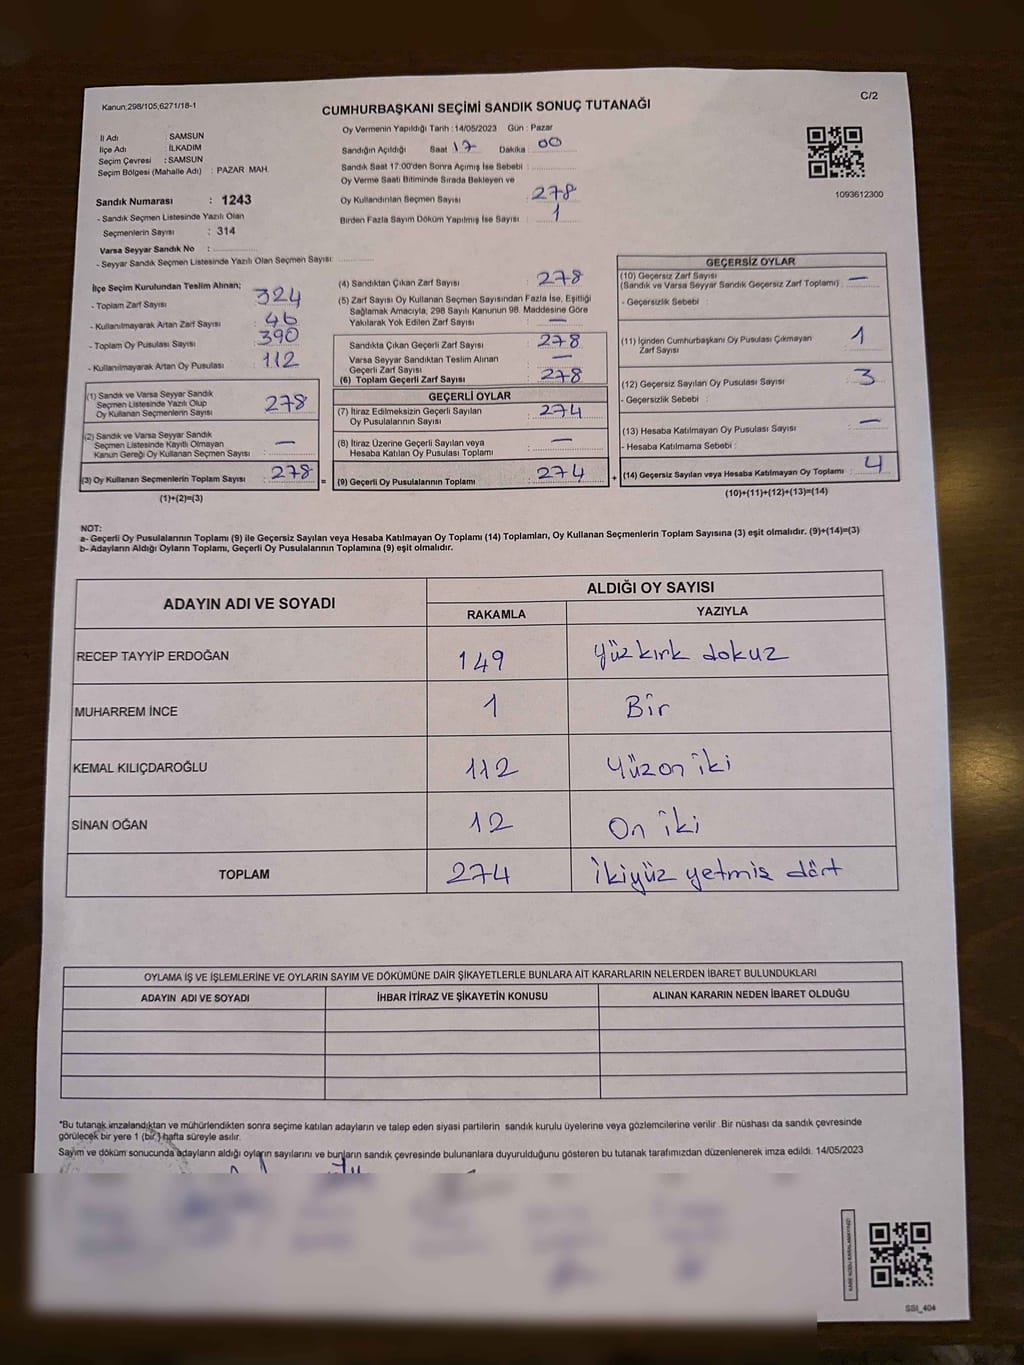 Kanun,298/105,6271/18-1
C/2
CUMHURBAŞKANI SEÇİMİ SANDIK SONUÇ TUTANAĞI
İl Adı : SAMSUN
İlçe Adı : İLKADIM
Seçim Çevresi : SAMSUN
Seçim Bölgesi (Mahalle Adı) : PAZAR MAH.
Sandık Numarası : 1243
- Sandık Seçmen Listesinde Yazılı Olan
Seçmenlerin Sayısı : 314
Varsa Seyyar Sandık No :
- Seyyar Sandık Seçmen Listesinde Yazılı Olan Seçmen Sayısı:
Oy Vermenin Yapıldığı Tarih : 14/05/2023 Gün : Pazar
Sandığın Açıldığı Saat 17 Dakika : 00
Sandık Saat 17:00'den Sonra Açımış İse Sebebi :
Oy Verme Saati Bitiminde Sırada Bekleyen ve
Oy Kullandırılan Seçmen Sayısı : 278
Birden Fazla Sayım Döküm Yapılmış İse Sayısı : 1
1093612300
İlçe Seçim Kurulundan Teslim Alınan;
- Toplam Zarf Sayısı : 324
- Kullanılmayarak Artan Zarf Sayısı : 46
- Toplam Oy Pusulası Sayısı : 390
- Kullanılmayarak Artan Oy Pusulası : 112
(1) Sandık ve Varsa Seyyar Sandık
Seçmen Listesinde Yazılı Olup
Oy Kullanan Seçmenlerin Sayısı : 278
(2) Sandık ve Varsa Seyyar Sandık
Seçmen Listesinde Kayıtlı Olmayan
Kanun Gereği Oy Kullanan Seçmen Sayısı : —
(3) Oy Kullanan Seçmenlerin Toplam Sayısı : 278 =
(1)+(2)=(3)
(4) Sandıktan Çıkan Zarf Sayısı : 278
(5) Zarf Sayısı Oy Kullanan Seçmen Sayısından Fazla İse, Eşitliği
Sağlamak Amacıyla; 298 Sayılı Kanunun 98. Maddesine Göre
Yakılarak Yok Edilen Zarf Sayısı : —
Sandıkta Çıkan Geçerli Zarf Sayısı : 278
Varsa Seyyar Sandıktan Teslim Alınan
Geçerli Zarf Sayısı : —
(6) Toplam Geçerli Zarf Sayısı : 278
GEÇERLİ OYLAR
(7) İtiraz Edilmeksizin Geçerli Sayılan
Oy Pusulalarının Sayısı : 274
(8) İtiraz Üzerine Geçerli Sayılan veya
Hesaba Katılan Oy Pusulası Toplamı : —
(9) Geçerli Oy Pusulalarının Toplamı : 274 +
GEÇERSİZ OYLAR
(10) Geçersiz Zarf Sayısı
(Sandık ve Varsa Seyyar Sandık Geçersiz Zarf Toplamı) : —
- Geçersizlik Sebebi :
(11) İçinden Cumhurbaşkanı Oy Pusulası Çıkmayan
Zarf Sayısı : 1
(12) Geçersiz Sayılan Oy Pusulası Sayısı : 3
- Geçersizlik Sebebi :
(13) Hesaba Katılmayan Oy Pusulası Sayısı : —
- Hesaba Katılmama Sebebi :
(14) Geçersiz Sayılan veya Hesaba Katılmayan Oy Toplamı : 4
(10)+(11)+(12)+(13)=(14)
NOT:
a- Geçerli Oy Pusulalarının Toplamı (9) ile Geçersiz Sayılan veya Hesaba Katılmayan Oy Toplamı (14) Toplamları, Oy Kullanan Seçmenlerin Toplam Sayısına (3) eşit olmalıdır. (9)+(14)=(3)
b- Adayların Aldığı Oyların Toplamı, Geçerli Oy Pusulalarının Toplamına (9) eşit olmalıdır.
ADAYIN ADI VE SOYADI
ALDIĞI OY SAYISI
RAKAMLA YAZIYLA
RECEP TAYYİP ERDOĞAN 149 Yüz kırk dokuz
MUHARREM İNCE 1 Bir
KEMAL KILIÇDAROĞLU 112 Yüz on iki
SİNAN OĞAN 12 On iki
TOPLAM 274 İkiyüz yetmiş dört
OYLAMA İŞ VE İŞLEMLERİNE VE OYLARIN SAYIM VE DÖKÜMÜNE DAİR ŞİKAYETLERLE BUNLARA AİT KARARLARIN NELERDEN İBARET BULUNDUKLARI
ADAYIN ADI VE SOYADI İHBAR İTİRAZ VE ŞİKAYETİN KONUSU ALINAN KARARIN NEDEN İBARET OLDUĞU
*Bu tutanak imzalandıktan ve mühürlendikten sonra seçime katılan adayların ve talep eden siyasi partilerin sandık kurulu üyelerine veya gözlemcilerine verilir. Bir nüshası da sandık çevresinde
görülecek bir yere 1 (bir) hafta süreyle asılır.
Sayım ve döküm sonucunda adayların aldığı oyların sayılarını ve bunların sandık çevresinde bulunanlara duyurulduğunu gösteren bu tutanak tarafımızdan düzenlenerek imza edildi. 14/05/2023
SSI_404